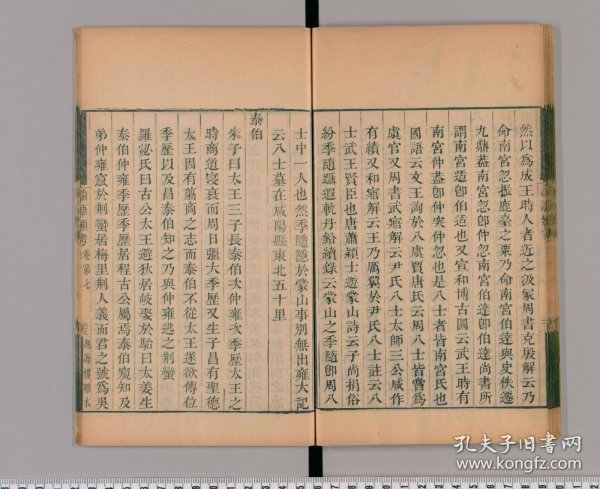 然以爲成王時人者近之汲冢周書克殷解云乃
命南宮忽振鹿臺之粟乃命南宮伯達與史佚遷
九鼎蓋南宮忽卽仲忽南宮伯達卽伯達尚書所
謂南宮适卽伯适也又宣和博古圖云武王時有
南宮仲蓋卽仲突仲忽也是八士者皆南宮氏也
國語云文王詢於八虞賈唐氏云周八士皆嘗爲
虞官又周書武寤解云尹氏八士太師三公咸作
有績又和寤解云王乃厲翼於尹氏八士註云八
士武王賢臣也唐蕭穎士遊蒙山詩云子尚捐俗
紛季隨躡遐軌丹鉛續錄云蒙山之季隨卽周八
士中一人也然季隨隱於蒙山事別無出雍大記
云八士墓在咸陽縣東北五十里
泰伯
朱子曰太王三子長泰伯次仲雍次季歷太王之
時商道寖衰而周日彊大季歷又生子昌有聖德
太王因有翦商之志而泰伯不從太王遂欲傳位
季歷以及昌泰伯知之乃與仲雍逃之荆蠻
羅泌氏曰古公太王避狄居岐娶於駘曰太姜生
泰伯仲雍季歷季歷居程古公屬焉泰伯窺知及
弟仲雍竄於荆蠻居梅里荆人義而君之號爲吳
卷第七
孔夫子旧书网
www.kongfz.com